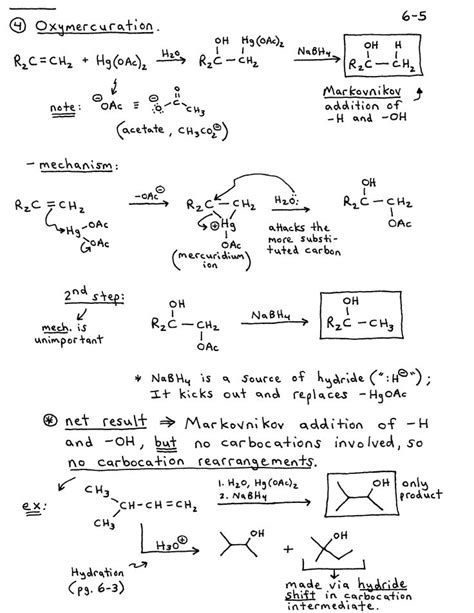 6-5
④ Oxymercuration.
R₂C=CH₂ + Hg(OAc)₂ H₂O → OH Hg(OAc)₂ R₂C-CH₂ NaBH₄ → OH H R₂C-CH₂
note: ⊖OAc ≡ ⊖O O CH₃
(acetate, CH₃CO₂⊖)
Markovnikov
addition of
-H and -OH
- mechanism:
R₂C=CH₂ Hg(OAc) OAc -OAc⊖ → R₂C-CH₂ ⊕Hg OAc H₂O: → OH R₂C-CH₂ OAc
(mercuridium
ion)
attacks the
more substi-
tuted carbon
2nd step:
mech. is
unimportant
OH R₂C-CH₂ OAc NaBH₄ → OH R₂C-CH₃
* NaBH₄ is a source of hydride (":H⊖");
It kicks out and replaces -HgOAc
⊛ net result ⇒ Markovnikov addition of -H
and -OH, but no carbocations involved, so
no carbocation rearrangements.
ex: CH₃ CH₃ CH-CH=CH₂ 1. H₂O, Hg(OAc)₂ 2. NaBH₄ → OH
only
product
H₃O⊕ → OH + OH
Hydration
(pg. 6-3)
made via hydride
shift in carbocation
intermediate.